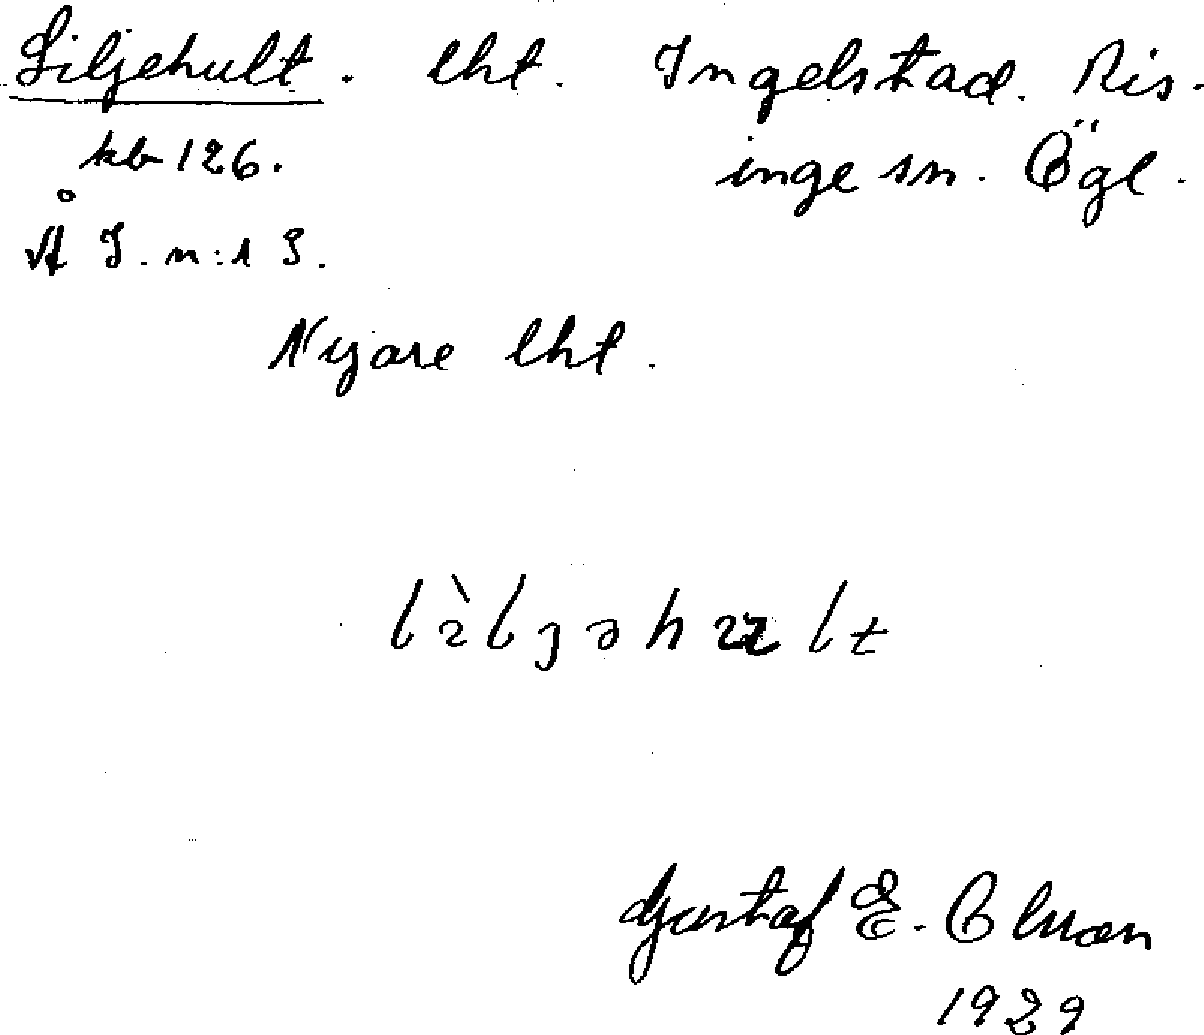 Liljehult. lht. Ingelstad. Ris-
kb 126. inge sn. Ögl.
Å I. n:1 3.
Nyare lht.
Gustaf E. Olman
1929